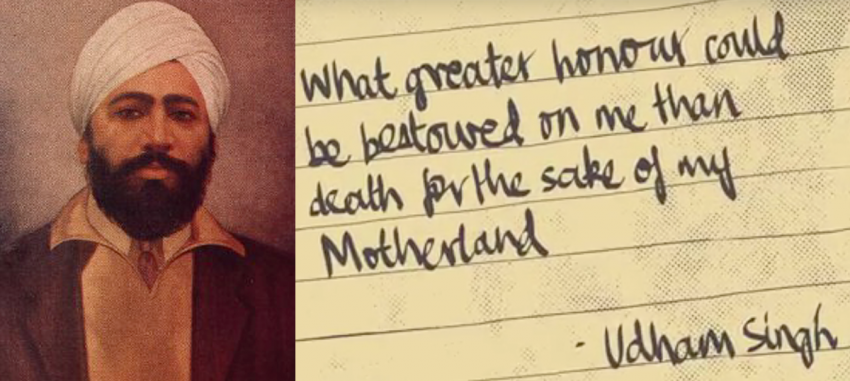 What greater honour could
be bestowed on me than
death for the sake of my
Motherland
- Udham Singh